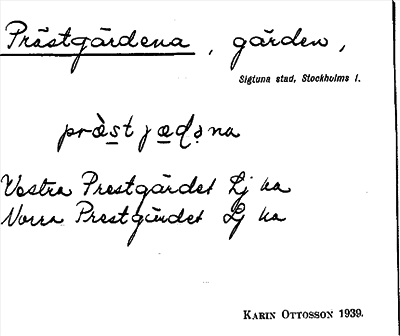 Prästgärdena, gärden,
Sigtuna stad, Stockholms l.
præ̀stjæḍəna
Vestra Prestgärdet Lj ka
Norra Prestgärdet Lj ka
KARIN OTTOSSON 1939.